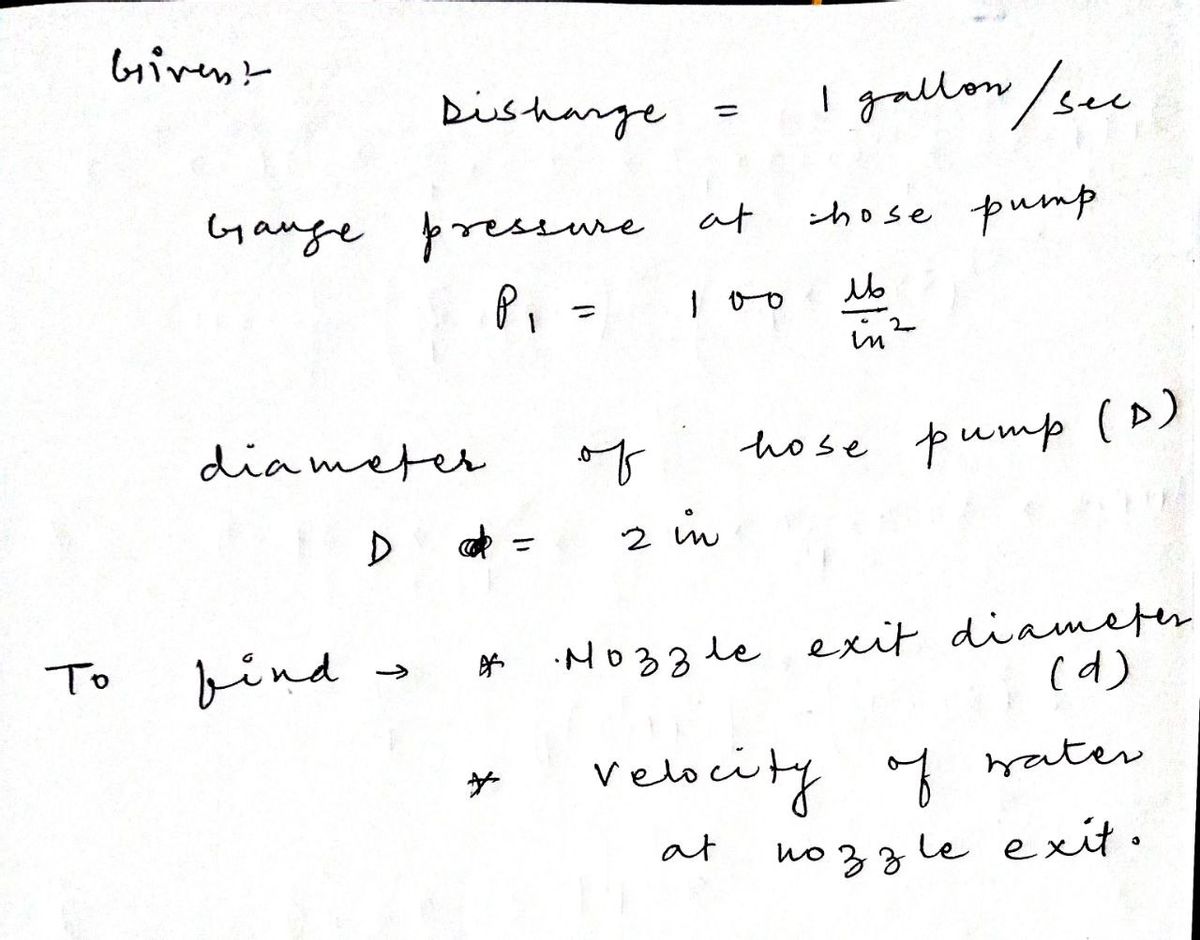 Given:-
Disharge = 1 gallon/sec
Gauge pressure at hose pump
P₁ = 100 lb/in²
diameter of hose pump (D)
D = 2 in
To find → * Nozzle exit diameter
(d)
* velocity of water
at nozzle exit.